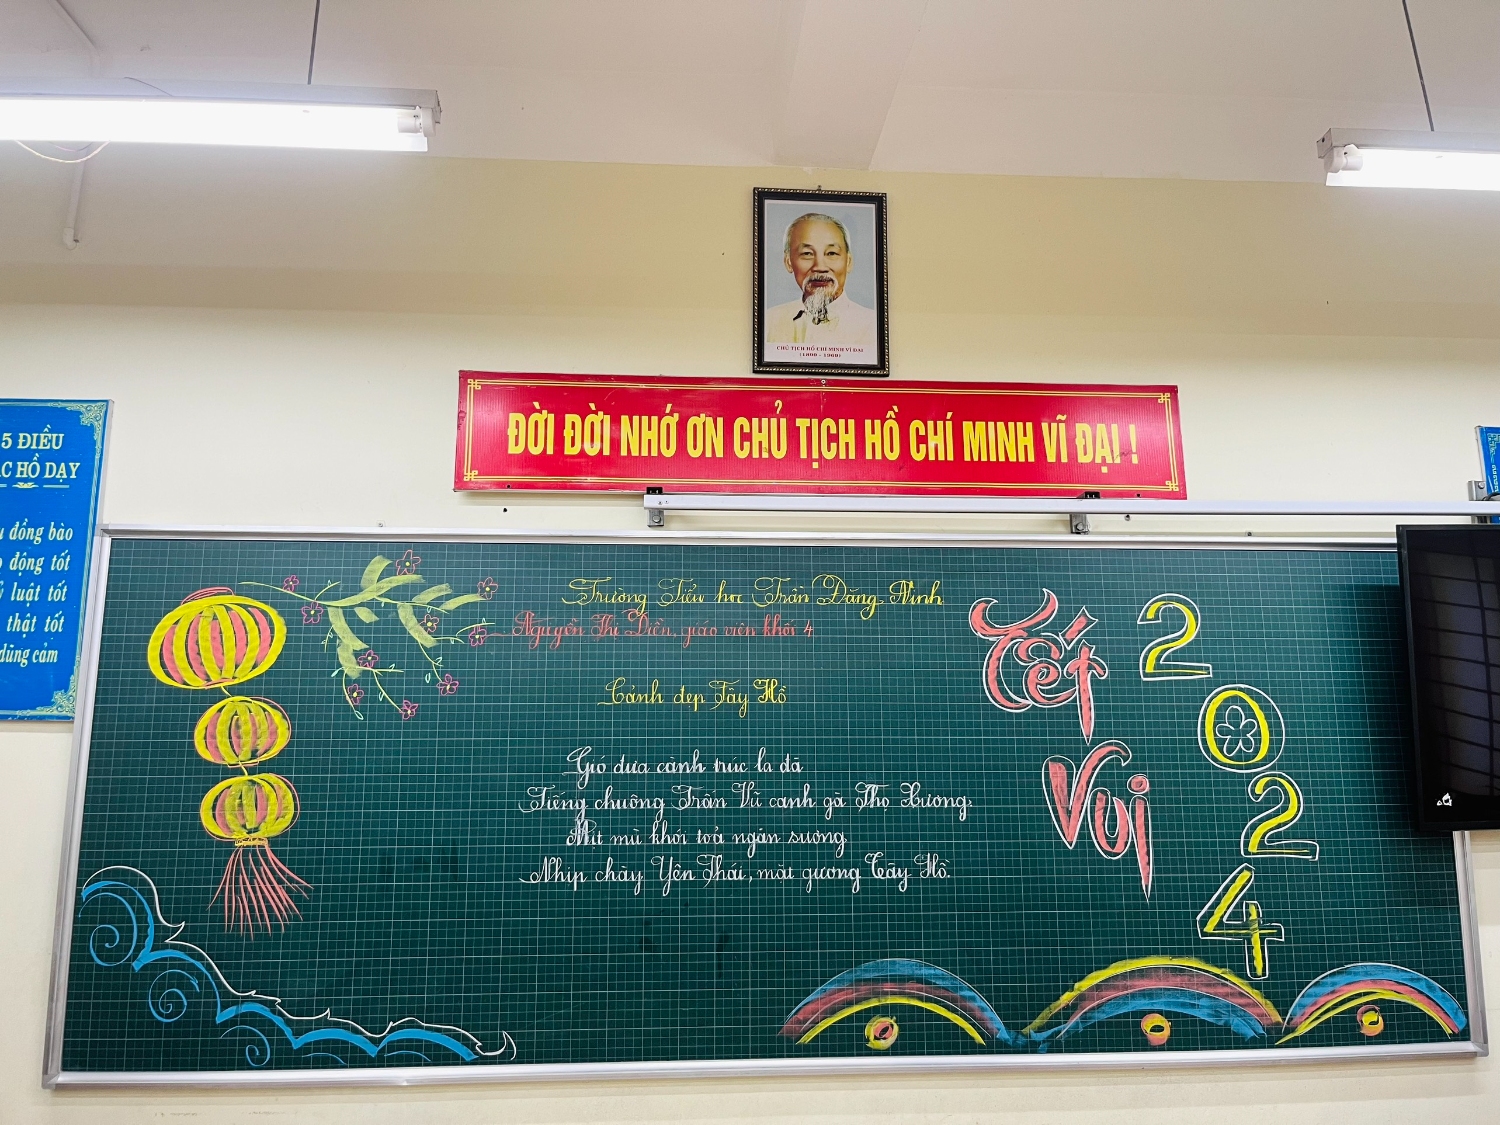 CHỦ TỊCH HỒ CHÍ MINH VĨ ĐẠI
(1890 - 1969)
ĐỜI ĐỜI NHỚ ƠN CHỦ TỊCH HỒ CHÍ MINH VĨ ĐẠI !
5 ĐIỀU
HỒ DẠY
đồng bào
động tốt
luật tốt
thật tốt
dũng cảm
Trường Tiểu học Trần Đăng Ninh
Nguyễn Thị Diền, giáo viên khối 4
Cảnh đẹp Tây Hồ
Gió đưa cành trúc la đà
Tiếng chuông Trấn Vũ canh gà Thọ Xương,
Mịt mù khói toả ngàn sương
Nhịp chày Yên Thái, mặt gương Tây Hồ.
Tết
Vui
2
0
2
4